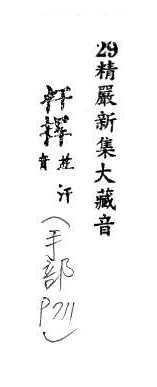 29精嚴新集大藏音
扞
並音汗
（手部P711）